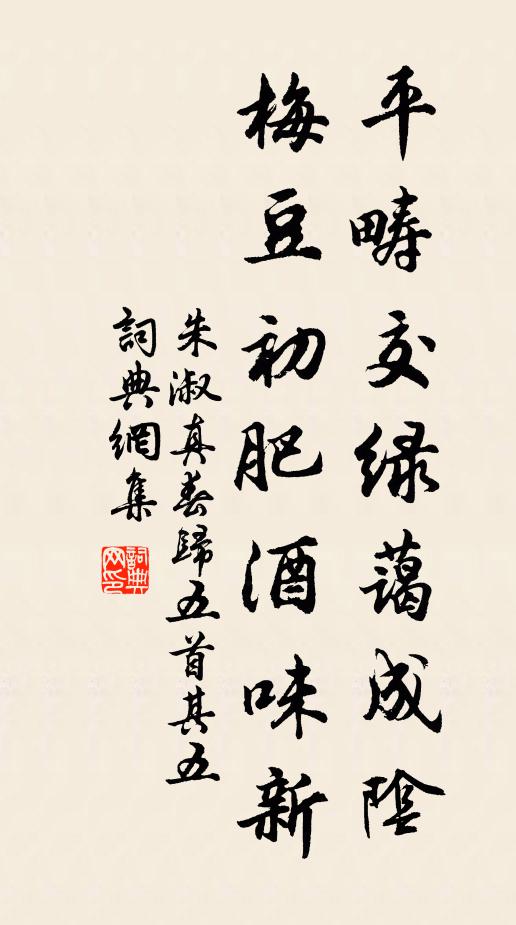 平疇交綠藹成陰
梅豆初肥酒味新
朱淑真春歸五首其五
詞典網集
詞典
网印